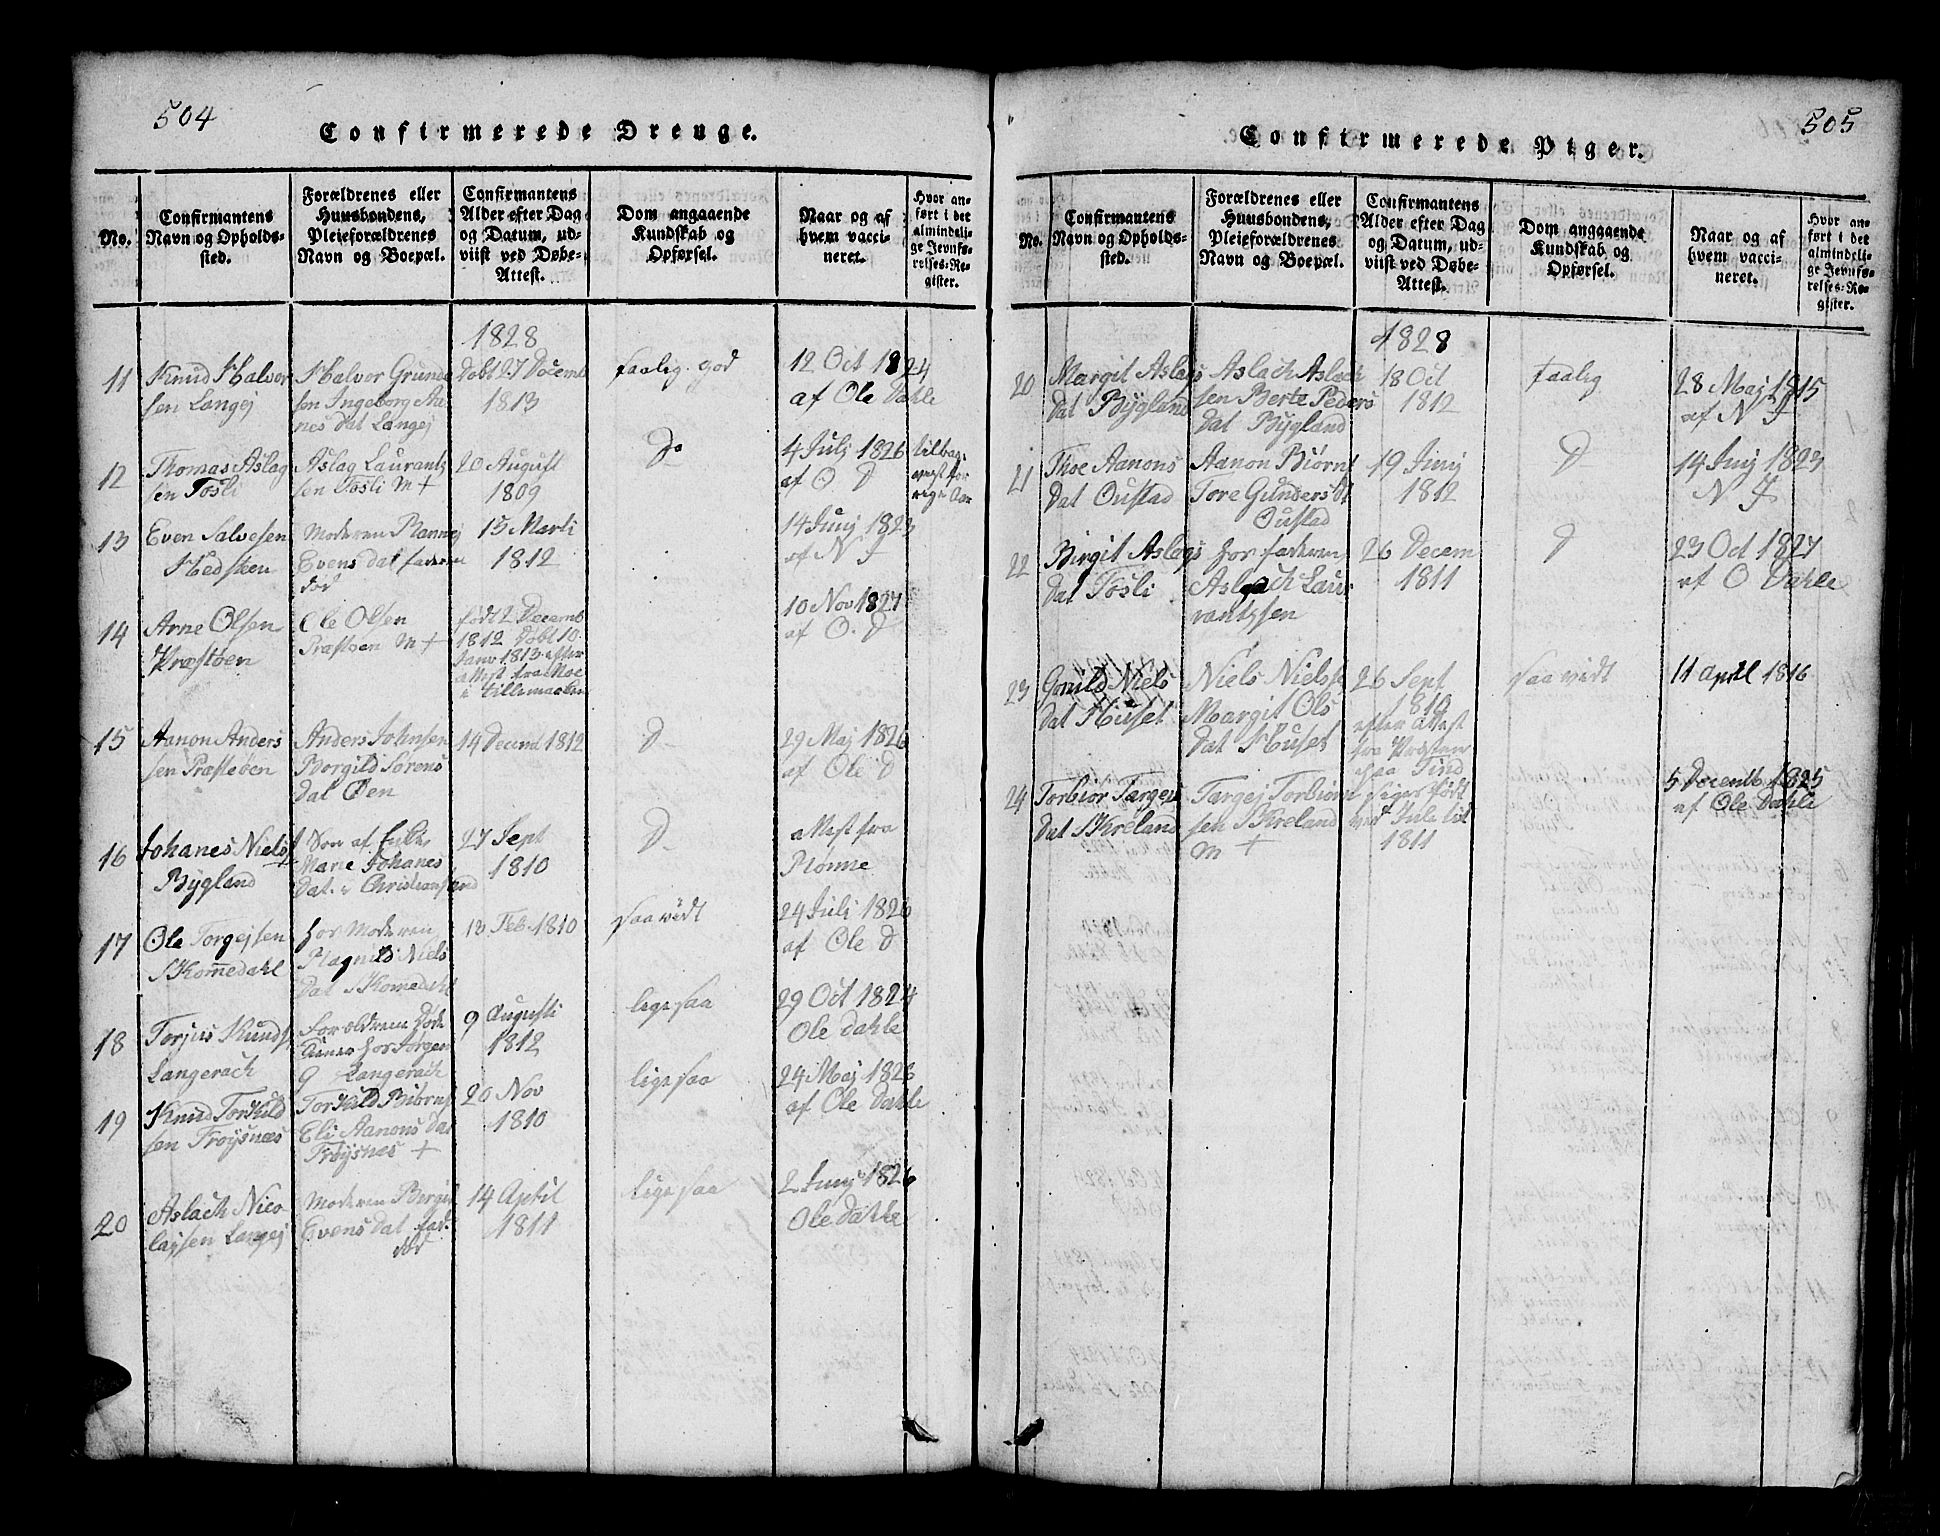 504
Confirmerede Drenge.
No.
Confirmantens
Navn og Opholds-
sted.
Forældrenes eller
Huusbondens,
Pleieforældrenes
Navn og Boepæl.
Confirmantens
Alder efter Dag
og Datum, ud-
viist ved Døbe-
Attest.
Dom angaaende
Kundskab og
Opførsel.
Naar og af
hvem vacci-
neret.
Hvor an-
ført i det
almindeli-
ge Jevnfø-
relses-Re-
gister.
1828
11
Knud Halvor
sen Langej
Halvor Grunde
sen Ingeborg Aa
nes dat Langej
Døbt 27 Decemb
1813
faalig. god
12 Oct 1824
af Ole Dahle
12
Thomas Aslag
sen Tøsli
Aslag Laurants
sen Tøsli M +
20 August
1809
Do
4 Juli 1826
af O. D
tilbag
13
Even Salvesen
Hedskeen
Moderen Rannej
Evens dat faderen
død
15 Marti
1812
14 Junj 1823
af N J
14
Arne Olsen
Præstøen
Ole Olsen
Præstøen M +
født 2 Decemb
1812 Døbt 10
Janv 1813 efter
attest fra Moe
i Tillemarken
10 Nov 1827
af O. D
15
Aanon Anders
sen Præstøen
Anders Johnsen
Borgild Sørens
dat Øen
14 Decemb 1812
D
29 Maj 1826
af Ole D
16
Johanes Niels
Bygland
Søn af Enke
Marie Johanes
dat i Christiansand
27 Sept
1810
D
attest fra
Rønne
17
Ole Torgejsen
Skomedahl
hos Moderen
Ragnild Niels
dat Skomedahl
13 Feb 1810
saavidt
24 Juli 1826
af Ole D
18
Torjus Knuds
Langerach
Forældrene døde
tiener hos Jørgen
G Langerach
9 Augusti
1812
ligesaa
29 Oct 1824
Ole Dahle
19
Knud Torkild
sen Frøysnæs
Torkild Biørns
Eli Aanons dat
Frøysnæs +
20 Nov
1810
ligesaa
24 Maj 1823
af Ole Dahle
20
Aslach Nico
lajsen Langej
Moderen Bergit
Evens dat fad.
død
14 April
1811
ligesaa
2 Junj 1826
Ole Dahle
505
Confirmerede Piger.
No.
Confirmantens
Navn og Opholds-
sted.
Forældrenes eller
Huusbondens,
Pleieforældrenes
Navn og Boepæl.
Confirmantens
Alder efter Dag
og Datum, ud-
viist ved Døbe-
Attest.
Dom angaaende
Kundskab og
Opførsel.
Naar og af
hvem vacci-
neret.
Hvor an-
ført i det
almindeli-
ge Jevnfø-
relses-Re-
gister.
1828
20
Margit Aslags
dat Bygland
Aslach Aslach
sen Berte Peders
dat Bygland
18 Oct
1812
faalig
28 Maj 1815
af N J
21
Thoe Aanons
dat Oustad
Aanon Biørns
Tore Gunders dt
Oustad
19 Junj
1812
D
14 Junj 1823
N J
22
Birgit Aslags
dat Tøsli
hos faderen
Aslach Lau
rantssen
26 Decem
1811
D
23 Oct 1827
af O Dahle
23
Gonild Niels
dat Huset
Niels Niels
Margit Ols
dat Huset
26 Sept
1810
efter attest
fra Præsten
paa Tind
saavidt
11 April 1816
24
Torbior Targes
dat Skreland
Targej Torbiøns
sen Skreland
M +
siges født
ved Jule tid
1811
5 Decemb 1825
af Ole Dahle